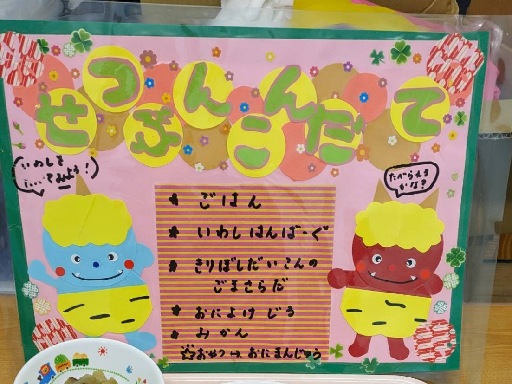 せつぶんこんだて
いわしを
たべられる
かな?
★ ごはん
★ いわしはんばーぐ
★ きりぼしだいこんの
ごまさらだ
★ おによけじる
★ みかん
☆おやつ→おにまんじゅう